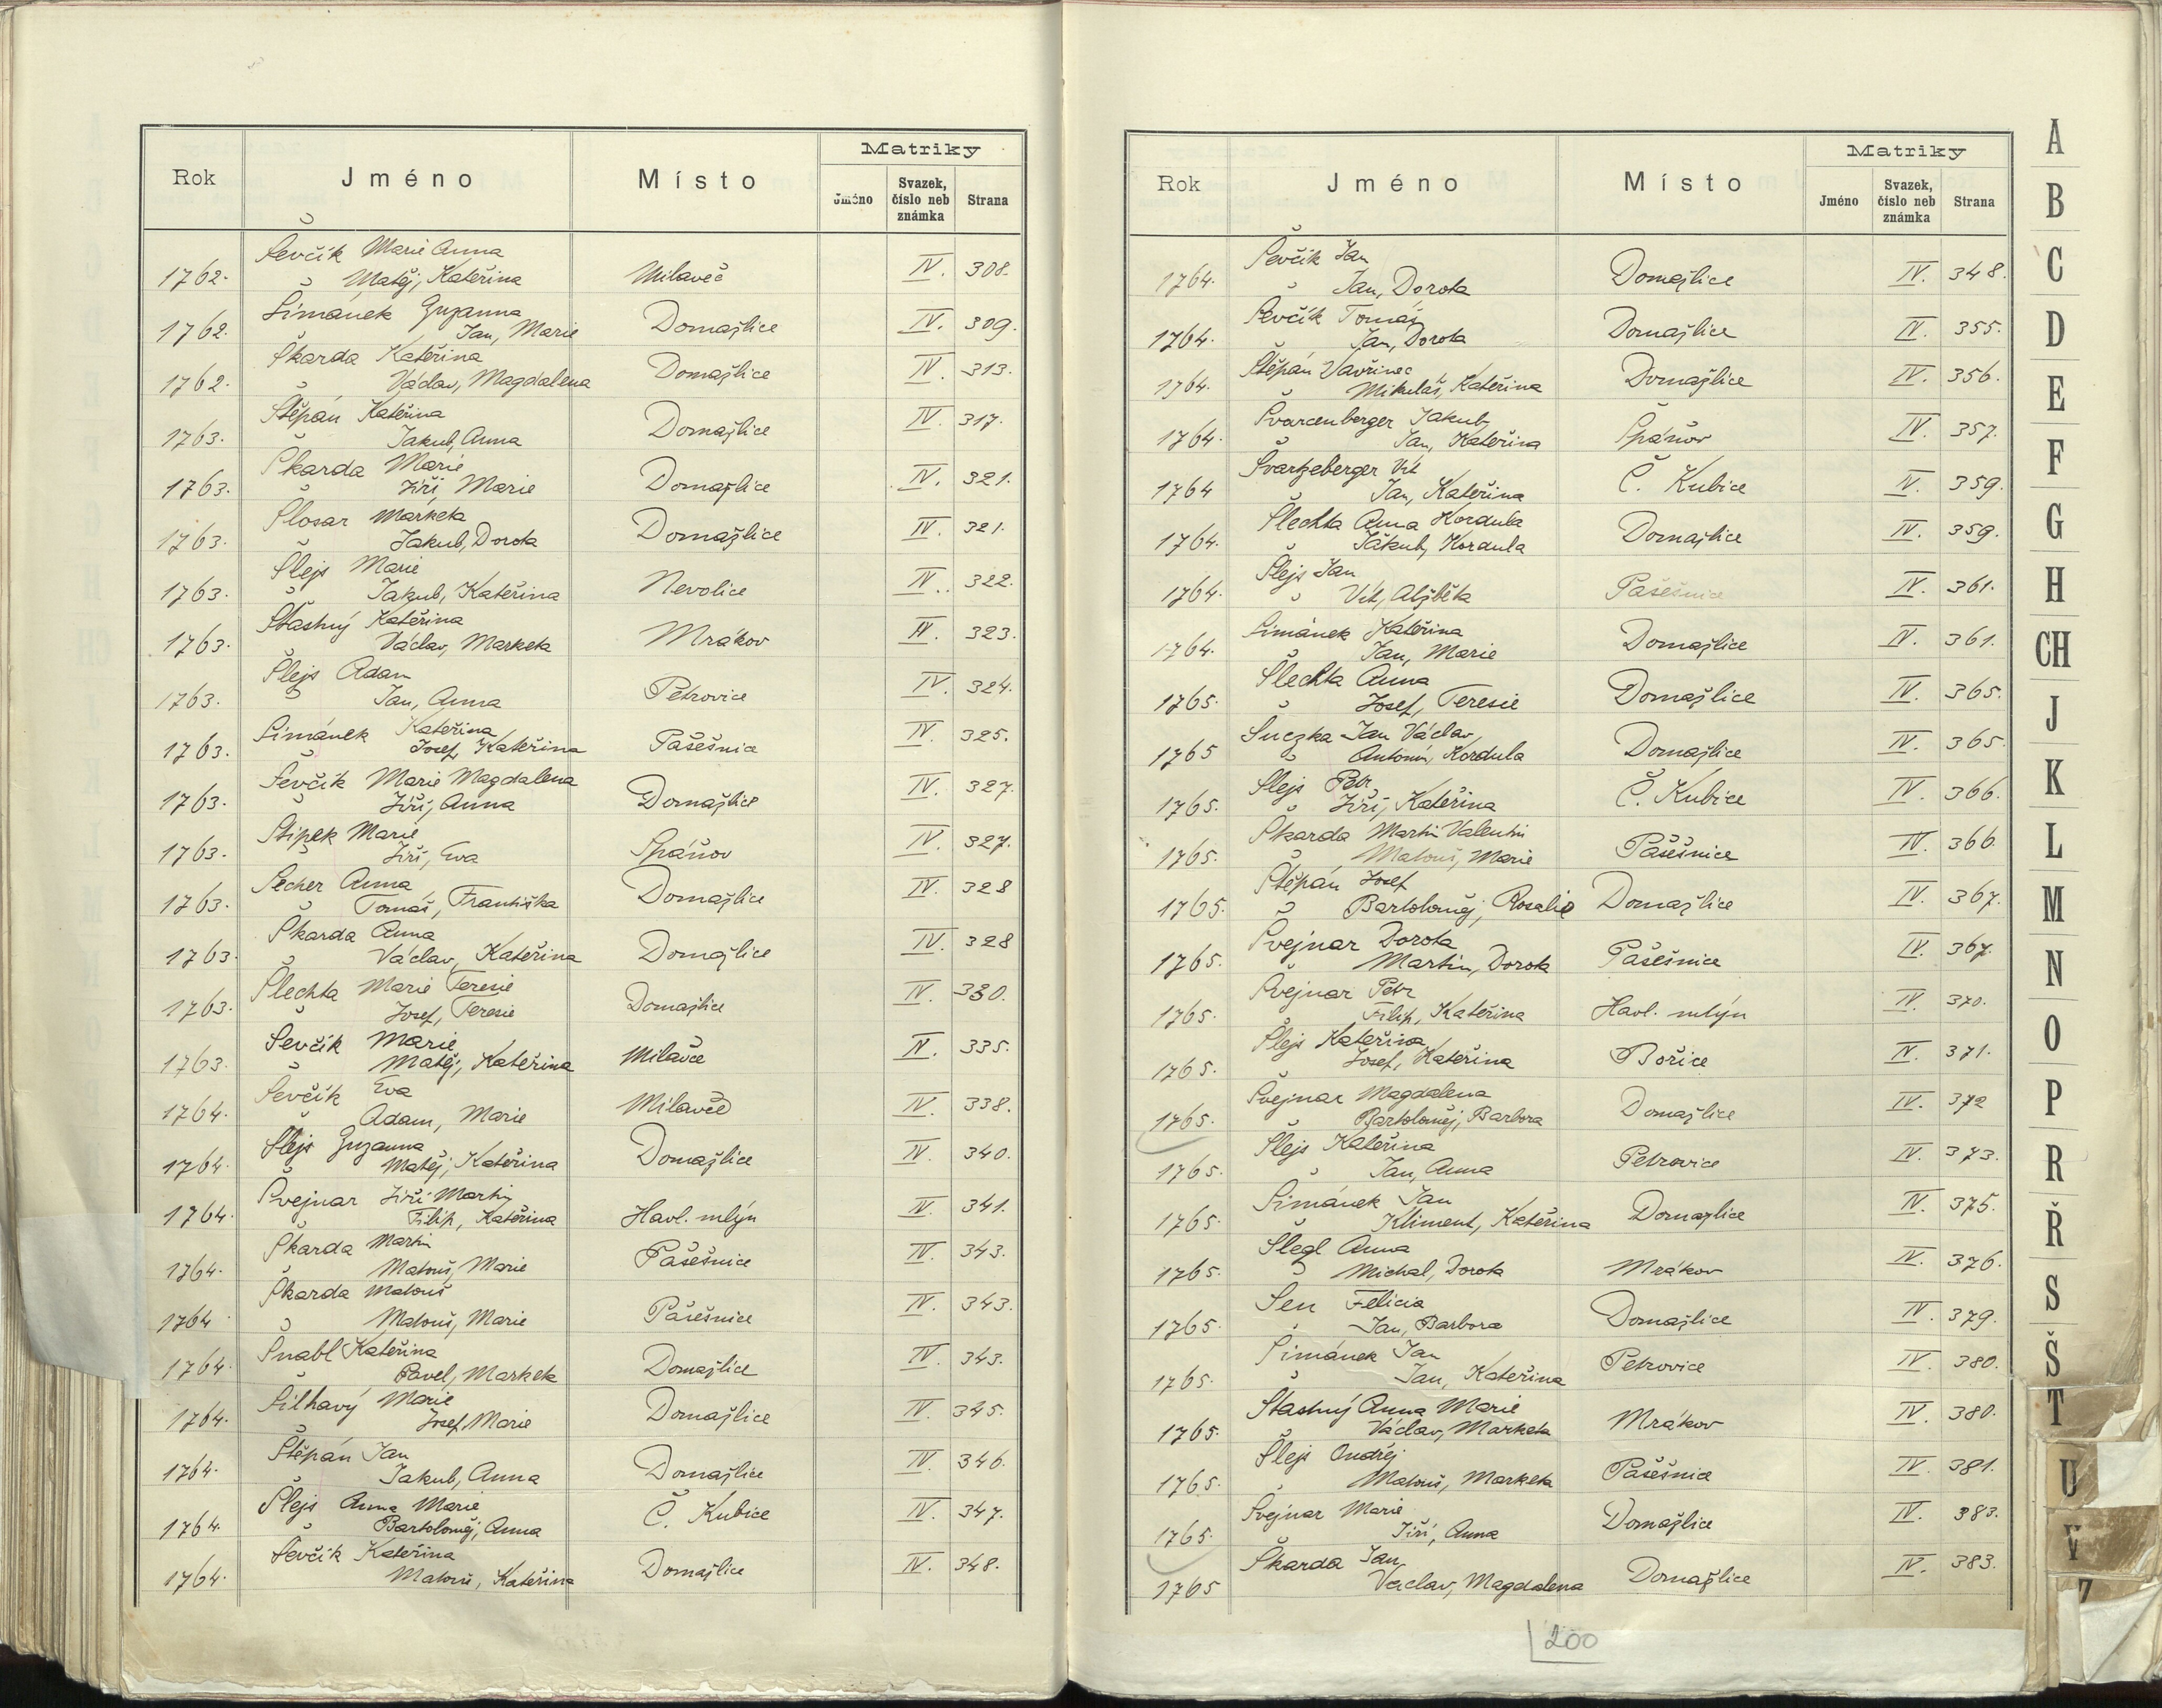 Matriky
Rok Jméno Místo Jméno Svazek, číslo neb známka Strana
Ševčík Marie Anna
1762. Matěj, Kateřina Milaveč IV. 308.
Šimánek Zuzanna
1762. Jan, Marie Domažlice IV. 309.
Škarda Kateřina
1762. Václav, Magdalena Domažlice IV. 313.
Štěpán Kateřina
1763. Jakub, Anna Domažlice IV. 317.
Škarda Marie
1763. Jiří, Marie Domažlice IV. 321.
Šlosar Marketa
1763. Jakub, Dorota Domažlice IV. 321.
Šlejs Marie
1763. Jakub, Kateřina Nevolice IV. 322.
Šťastný Kateřina
1763. Václav, Marketa Mrákov IV. 323.
Šlejs Adam
1763. Jan, Anna Petrovice IV. 324.
Šimánek Kateřina
1763. Josef, Kateřina Pašešnice IV. 325.
Ševčík Marie Magdalena
1763. Jiří, Anna Domažlice IV. 327.
Štipek Marie
1763. Jiří, Eva Spáňov IV. 327.
Šecher Anna
1763. Tomáš, Františka Domažlice IV. 328
Škarda Anna
1763. Václav, Kateřina Domažlice IV. 328
Šlechta Marie Teresie
1763. Josef, Teresie Domažlice IV. 330.
Ševčík Marie
1763. Matěj, Kateřina Milavče IV. 335.
Ševčík Eva
1764. Adam, Marie Milavče IV. 338.
Šlejs Zuzanna
1764. Matěj, Kateřina Domažlice IV. 340.
Švejnar Jiří Martin
1764. Filip, Kateřina Havl. mlýn IV. 341.
Škarda Martin
1764. Matouš, Marie Pašešnice IV. 343.
Škarda Matouš
1764 Matouš, Marie Pašešnice IV. 343.
Šnabl Kateřina
1764. Pavel, Marketa Domažlice IV. 343.
Šilhavý Marie
1764. Josef, Marie Domažlice IV. 345.
Štěpán Jan
1764. Jakub, Anna Domažlice IV. 346.
Šlejs Anna Marie
1764. Bartoloměj, Anna Č. Kubice IV. 347.
Ševčík Kateřina
1764. Matouš, Kateřina Domažlice IV. 348.
Matriky
Rok Jméno Místo Jméno Svazek, číslo neb známka Strana
Ševčík Jan
1764. Jan, Dorota Domažlice IV. 348.
Ševčík Tomáš
1764. Jan, Dorota Domažlice IV. 355.
Štěpán Vavřinec
1764. Mikuláš, Kateřina Domažlice IV. 356.
Švarcenberger Jakub
1764. Jan, Kateřina Spáňov IV. 357.
Švartzeberger Vít
1764 Jan, Kateřina Č. Kubice IV. 359.
Šlechta Anna Kordula
1764. Jakub, Kordula Domažlice IV. 359.
Šlejs Jan
1764. Vít, Alžběta Pašešnice IV. 361.
Šimánek Kateřina
1764. Jan, Marie Domažlice IV. 361.
Šlechta Anna
1765. Josef, Teresie Domažlice IV. 365.
Šuczka Jan Václav
1765 Antonín, Kordula Domažlice IV. 365.
Šlejs Petr
1765. Jiří, Kateřina Č. Kubice IV. 366.
Škarda Martin Valentin
1765. Matouš, Marie Pašešnice IV. 366.
Štěpán Josef
1765. Bartoloměj, Rosalie Domažlice IV. 367.
Švejnar Dorota
1765. Martin, Dorota Pašešnice IV. 367.
Švejnar Petr
1765. Filip, Kateřina Havl. mlýn IV. 370.
Šlejs Kateřina
1765. Josef, Kateřina Bořice IV. 371.
Švejnar Magdalena
1765. Bartoloměj, Barbora Domažlice IV. 372
Šlejs Kateřina
1765. Jan, Anna Petrovice IV. 373.
Šimánek Jan
1765. Kliment, Kateřina Domažlice IV. 375.
Šlegl Anna
1765. Michal, Dorota Mrákov IV. 376.
Šen Felicia
1765. Jan, Barbora Domažlice IV. 379.
Šimánek Jan
1765. Jan, Kateřina Petrovice IV. 380.
Šťastný Anna Marie
1765. Václav, Marketa Mrákov IV. 380.
Šlejs Ondřej
1765. Matouš, Marketa Pašešnice IV. 381.
Švejnar Marie
1765. Jiří, Anna Domažlice IV. 383.
Škarda Jan
1765 Václav, Magdalena Domažlice IV. 383.
200
A
B
C
D
E
F
G
H
CH
J
K
L
M
N
O
P
R
Ř
S
Š
T
U
V
Z